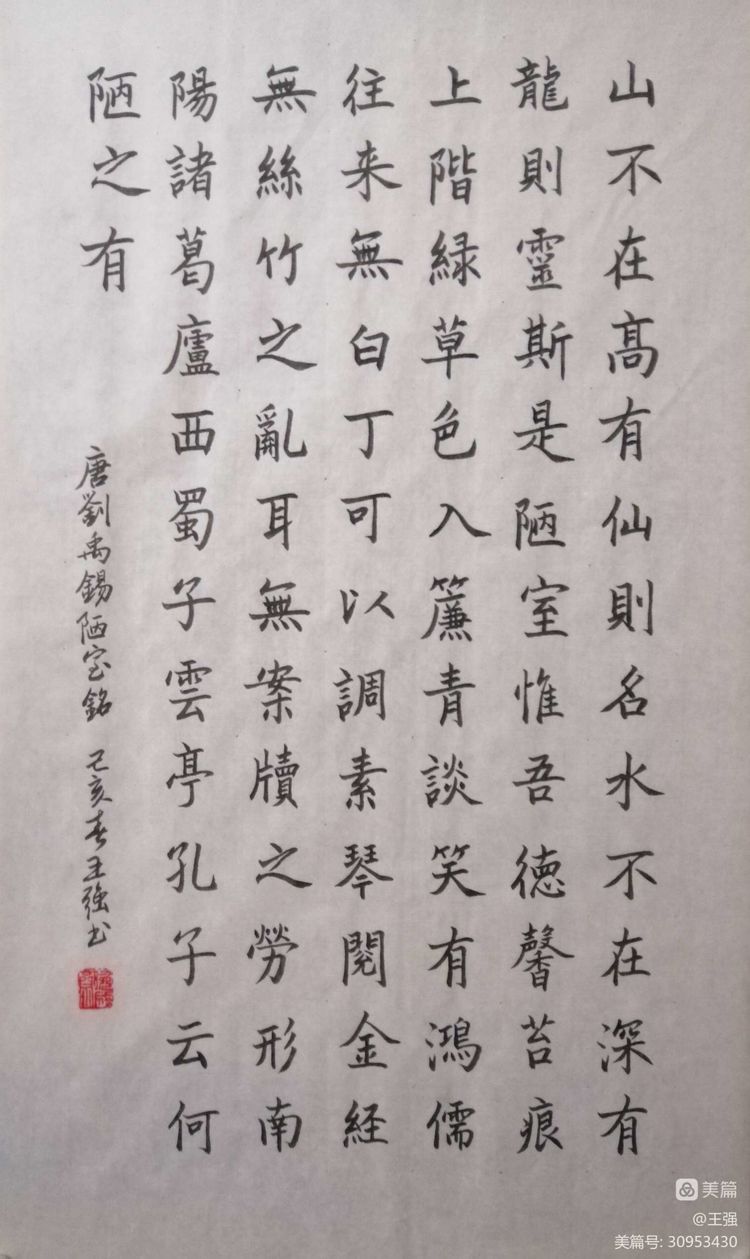 山不在高有仙則名水不在深有
龍則靈斯是陋室惟吾德馨苔痕
上階緑草色入簾青談笑有鴻儒
往来無白丁可以調素琴閱金経
無絲竹之亂耳無案牘之勞形南
陽諸葛廬西蜀子雲亭孔子云何
陋之有
唐劉禹錫陋室銘 己亥春王强书
美篇
@王强
美篇号: 30953430